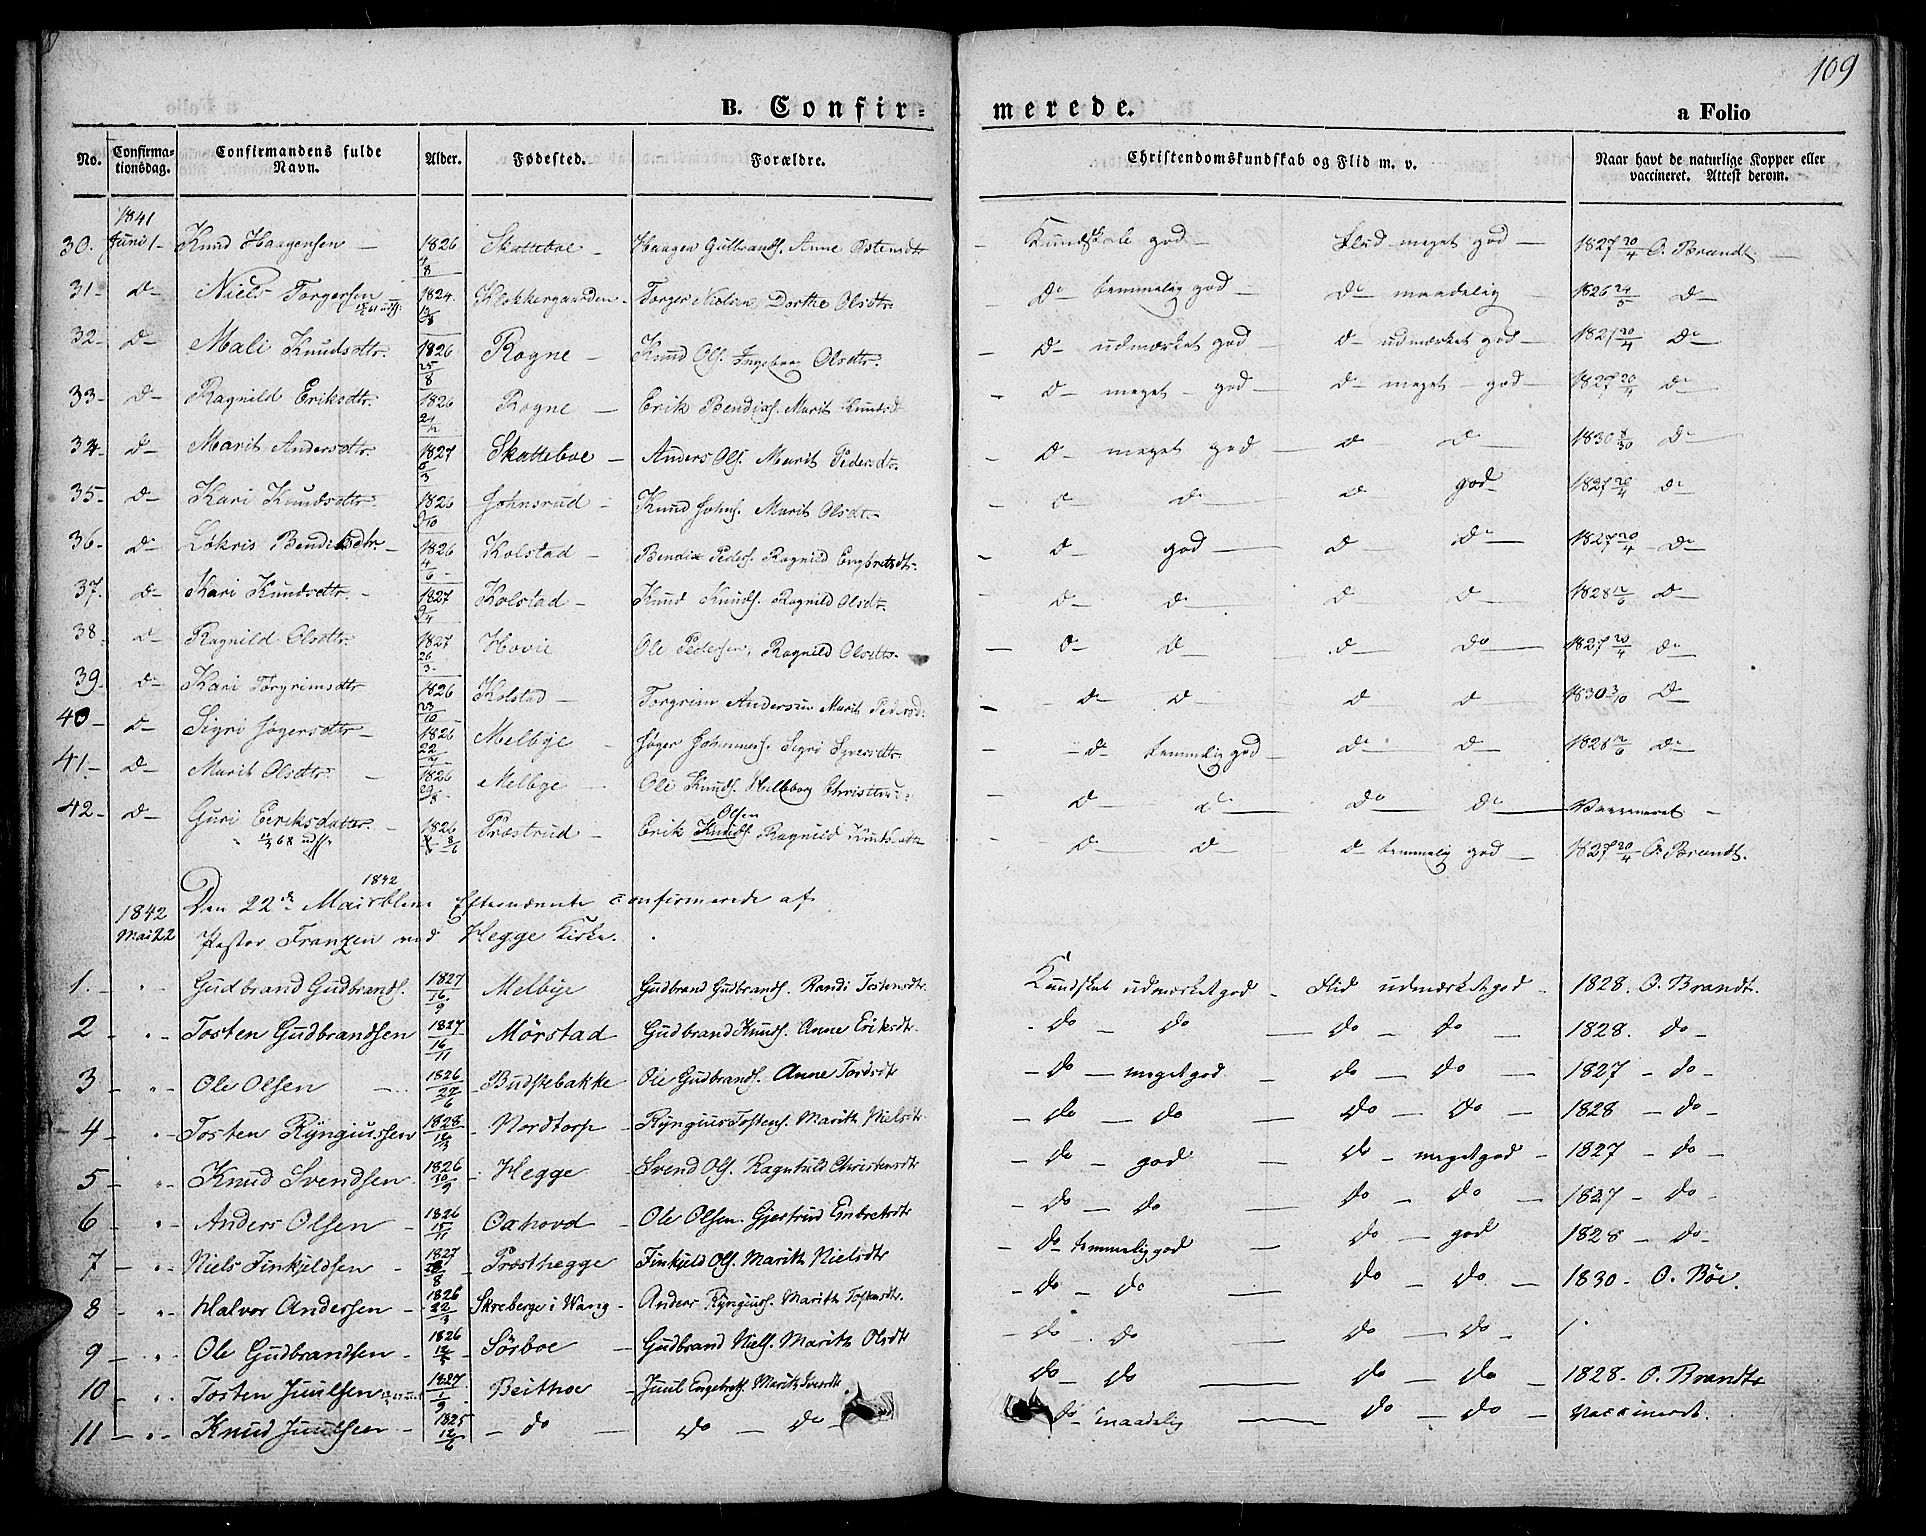 109
B. Confirmerede. a Folio
No. Confirmationsdag. Confirmandens fulde Navn. Alder. Fødested. Forældre. Christendomskundskab og Flid m. v. Naar havt de naturlige Kopper eller vaccineret. Attest derom.
1841
30. Juni 1- Knud Haagensen - 1826 Skatteboe - Haagen Gulbrands. Anne Ostensdtr - Kundskab god - Flid meget god - 1827 20/4 O. Brandt.
31- do- Niels Torgersen 1824 Klokkergaarden - Torger Nielsen, Dorthe Olsdtr. - do temmelig god - do maadelig 1826 24/5 do-
32- do- Mali Knudsdtr. 1826 25/8 Rogne - Knud Ols. Ingeborg Olsdtr. - do- udmærket god - do- udmærket god - 1827 20/4 do-
33- do- Ragnild Eriksdtr. 1826 Rogne - Erik Bendixs. Marit Knudsd - do- meget god - do- meget - god - 1827 20/4 do
34- do- Marit Andersdtr. 1827 6/3 Skatteboe - Anders Ols. Marit Pedersdtr. - do- meget god - do do- 1830 do-
35- do- Kari Knudsdtr. 1826 9/10 Johnsrud - Knud Johns. Marit Olsdtr- do do- do god 1827 20/4 do-
36- do- Løkris Bendixsdtr - 1826 4/6 - Kolstad - Bendix Peders. Ragnild Engbretsdtr. - do god - do do- 1827 20/4 - do-
37. do- Kari Knudsdtr. - 1827 9/4 Kolstad - Knud Knuds. Ragnild Olsdtr. do- do- do do- 1828 do-
38 do- Ragnild Olsdtr. 1827 26/3- Hovie Ole Pedersen, Ragnild Olsdtr. - do- do- do do- 1827 20/4 do-
39- do- Kari Torgrimsdtr 1826 23/10 Kolstad - Torgrim Andersen Marit Pedersd: - do- do- do do- 1830 3/10 do
40- do- Sigri Jøgersdtr - 1826 Melbye - Jøger Johannes. Sigri Syversdtr. - do- temmelig god do- do- 1828 do-
41- do- Marit Olsdtr. - 1826 29/8 - Melbye - Ole Knuds. Helleborg - do- do do do - Vaccineret -
42- do- Guri Eeriksdatter. - 1826 8/6 Præstrud - Erik Knuds. Olsen Ragnild Knudsdtr do- do- do temmelig god - 1827 20/4 O. Brandt.
12/3 68 udfl.
1842 Mai 22 Den 22de Mai 1842 bleve Efternævnte Confirmerede af
Pastor Franzen ved Hegge Kirke.
1. Gudbrand Gudbrands. 1827 16/9 Melbye Gudbrand Gudbrands. Randi Tostensdtr. Kundskab udmærket god - Flid udmærket god - 1828. O. Brandt.
2 - Tosten Gudbrandsen 1827 16/11 - Mörstad Gudbrand Knuds. Anne Eriksdtr. do - do - do - do - 1828. do-
3 - Ole Olsen - 1826 27/6 - Budstebakke Ole Gudbrands. Anne Tordsdtr - do - meget god - do - do - 1827 - do-
4 - Tosten Ryngiussen 1828 16/3 - Nordtorp - Ryngius Tostens. Marith Nielsdtr. - do - do - do - do - 1828 - do-
5 - Knud Svendsen. 1826 30/9 - Hegge - Svend Ols. Ragnhild Christensdtr - do - god - do - meget god - 1827 - do-
6 - Anders Olsen - 1826 15/11 - Oahovd - Ole Olsen. Gjertrud Endretsdtr - do - do - do - do - 1827 - do-
7 - Niels Finkjeldsen - 1827 28/8 - Præsthegge Finkjeld Ols. Marith Nielsdtr - do - temmelig god - do - god 1828 - do-
8 - Halvor Andersen - 1826 22/3 - Skreberge i Wang - Anders Ryngius. Marith Tostensdtr. - do - do - do - do - 1830 - O. Böe.
9 - Ole Gudbrandsen - 1826 12/5 - Sörboe - Gudbrand Niels. Marith Olsdtr - do - do - do - do - 1.
10 - Tosten Juulsen 1827. 1/9 - Beithoe - Juul Engebrets. Marith Iversdtr. do - do - do - do - 1828. O. Brandt
11 - Knud Juulsen - 1825 12/6 - do - do - do - do - maadelig - do - do - Vaccineret.